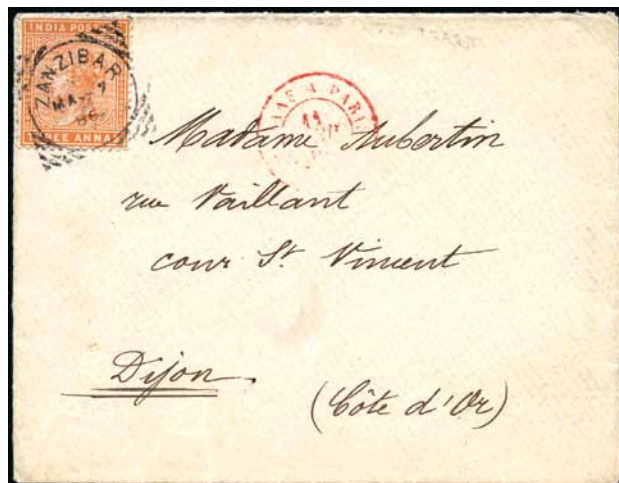 INDIA POST
ZANZIBAR
MA 7
86
THREE ANNAS
A PARIS
Madame Aubertin
rue Vaillant
cour St. Vincent
Dijon
(Côte d'Or)